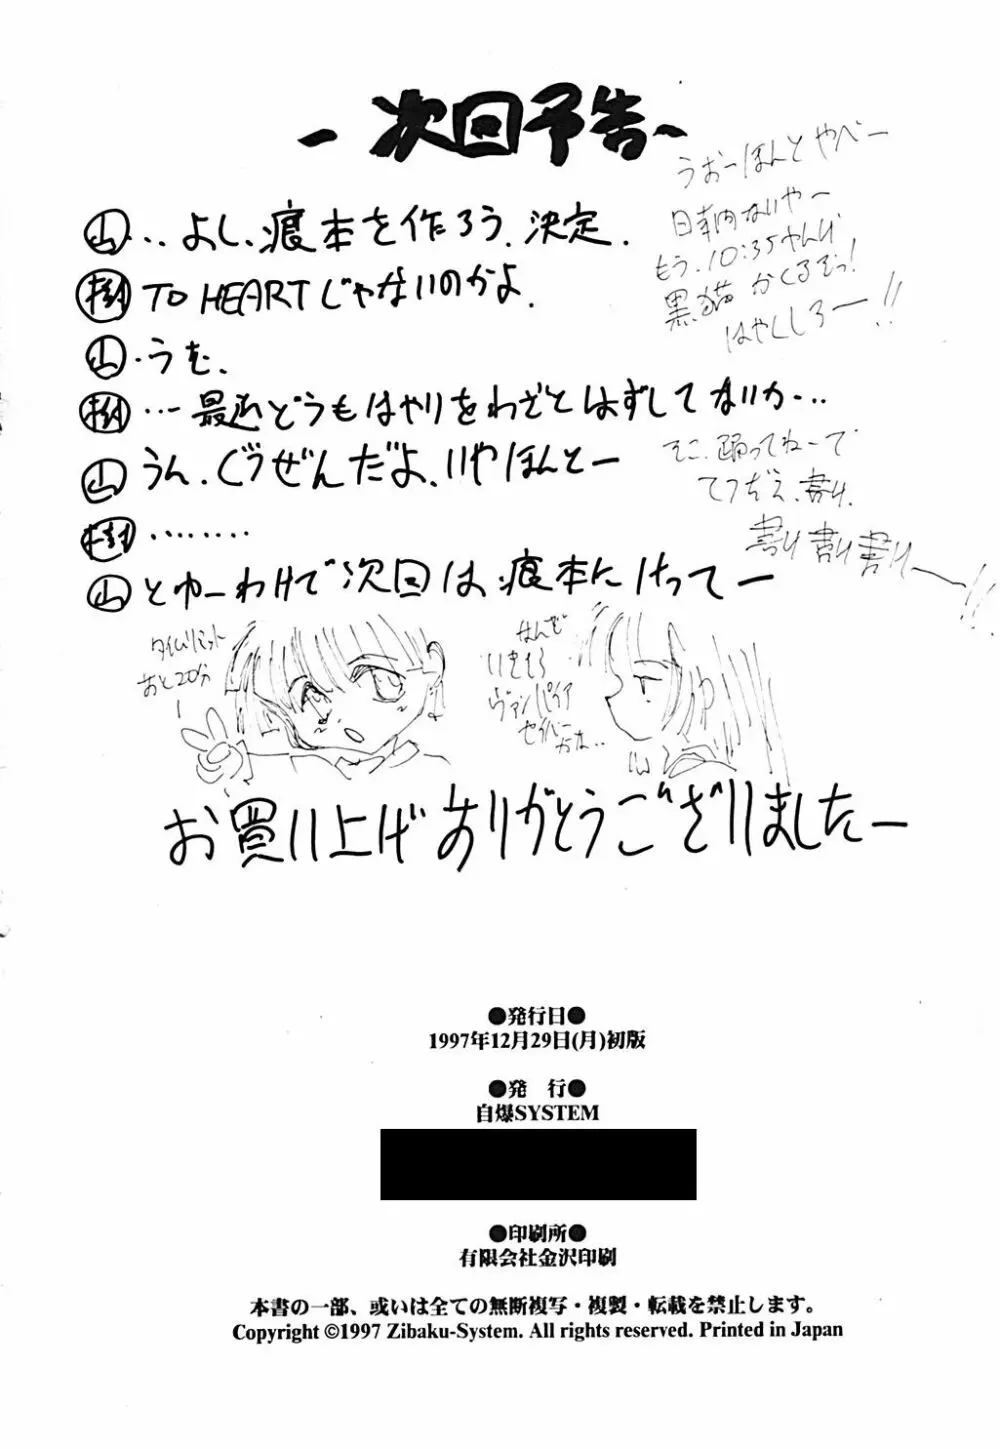 －次回予告～
山‥よし、痕本を作ろう、決定．
樹 TO HEARTじゃないのかよ．
山・うむ、
樹…最近どうもはやりをわざとはずしてないか…
山 うん、ぐうぜんだよ、いやほんとー
樹………
山 とゆーわけで次回は痕本にけってー
うおーほんとやべー
もう、10:35やんけ
黒猫かくるぞっ！
はやくしろー!!
そこ、踊ってねーで
てつだえ、
タイムリミット
あと20分
なんで
いきなり
ヴァンパイア
セイバー
かね‥
お買い上げありがとうございましたー
●発行日●
1997年12月29日(月)初版
●発　行●
自爆SYSTEM
●印刷所●
有限会社金沢印刷
本書の一部、或いは全ての無断複写・複製・転載を禁止します。
Copyright ©1997 Zibaku-System. All rights reserved. Printed in Japan